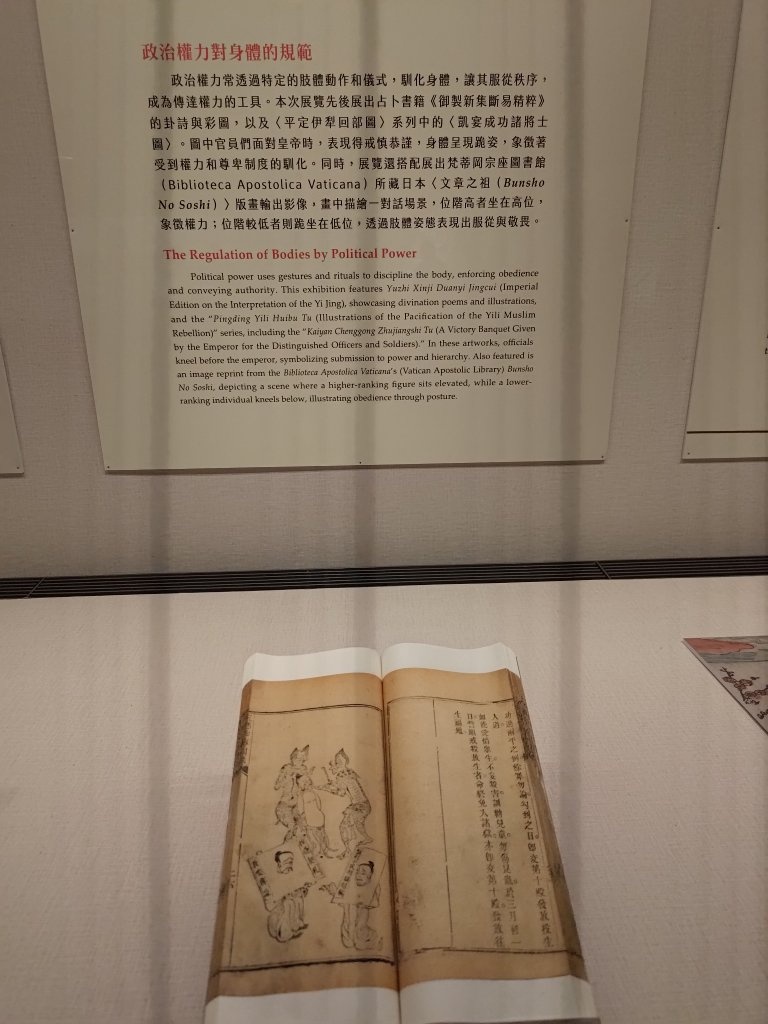 政治權力對身體的規範
政治權力常透過特定的肢體動作和儀式，馴化身體，讓其服從秩序，
成為傳達權力的工具。本次展覽先後展出占卜書籍《御製新集斷易精粹》
的卦詩與彩圖，以及〈平定伊犁回部圖〉系列中的〈凱宴成功諸將士
圖〉。圖中官員們面對皇帝時，表現得戒慎恭謹，身體呈現跪姿，象徵著
受到權力和尊卑制度的馴化。同時，展覽還搭配展出梵蒂岡宗座圖書館
（Biblioteca Apostolica Vaticana）所藏日本〈文章之祖（Bunsho
No Soshi）〉版畫輸出影像，畫中描繪一對話場景，位階高者坐在高位，
象徵權力；位階較低者則跪坐在低位，透過肢體姿態表現出服從與敬畏。
The Regulation of Bodies by Political Power
Political power uses gestures and rituals to discipline the body, enforcing obedience
and conveying authority. This exhibition features Yuzhi Xinji Duanyi Jingcui (Imperial
Edition on the Interpretation of the Yi Jing), showcasing divination poems and illustrations,
and the "Pingding Yili Huibu Tu (Illustrations of the Pacification of the Yili Muslim
Rebellion)" series, including the "Kaiyan Chenggong Zhujiangshi Tu (A Victory Banquet Given
by the Emperor for the Distinguished Officers and Soldiers)." In these artworks, officials
kneel before the emperor, symbolizing submission to power and hierarchy. Also featured is
an image reprint from the Biblioteca Apostolica Vaticana's (Vatican Apostolic Library) Bunsho
No Soshi, depicting a scene where a higher-ranking figure sits elevated, while a lower-
ranking individual kneels below, illustrating obedience through posture.
功過兩平之到日之日即交第十殿發放投生
人道
生福地